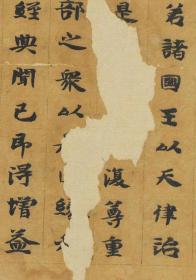 若諸國王以天律治
是復尊重
部之眾以
經典聞已即得增益